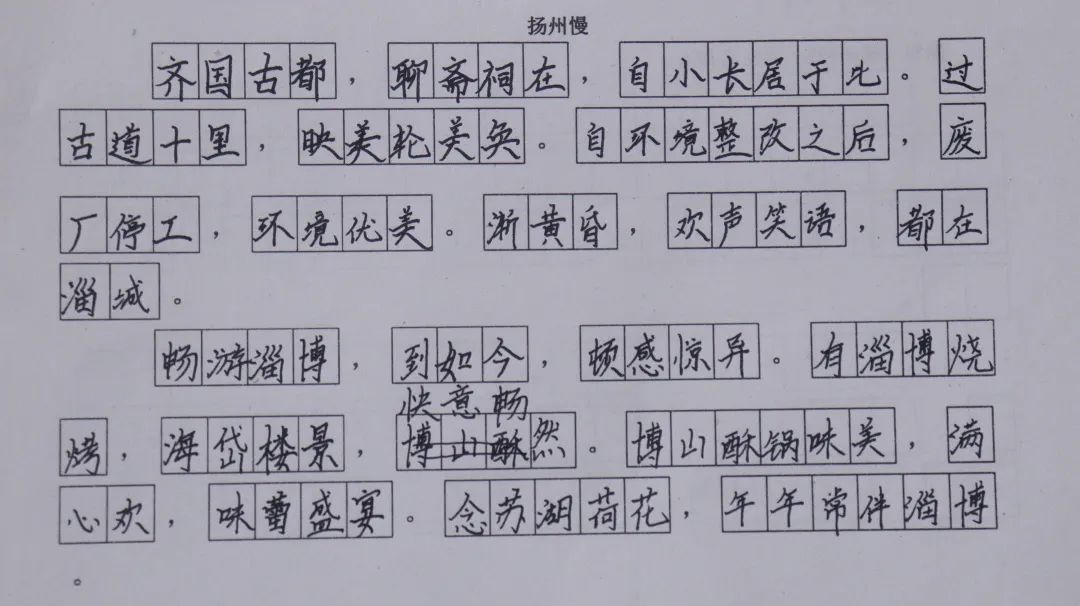 扬州慢
齐国古都，聊斋祠在，自小长居于此。过
古道十里，映美轮美奂。自环境整改之后，废
厂停工，环境优美。渐黄昏，欢声笑语，都在
淄城。
畅游淄博，到如今，顿感惊异。有淄博烧
快意畅
烤，海岱楼景，博山酥然。博山酥锅味美，满
心欢，味蕾盛宴。念苏湖荷花，年年常伴淄博
。